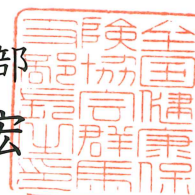 部
宏
全国健康保
険協会群馬
支部長之印